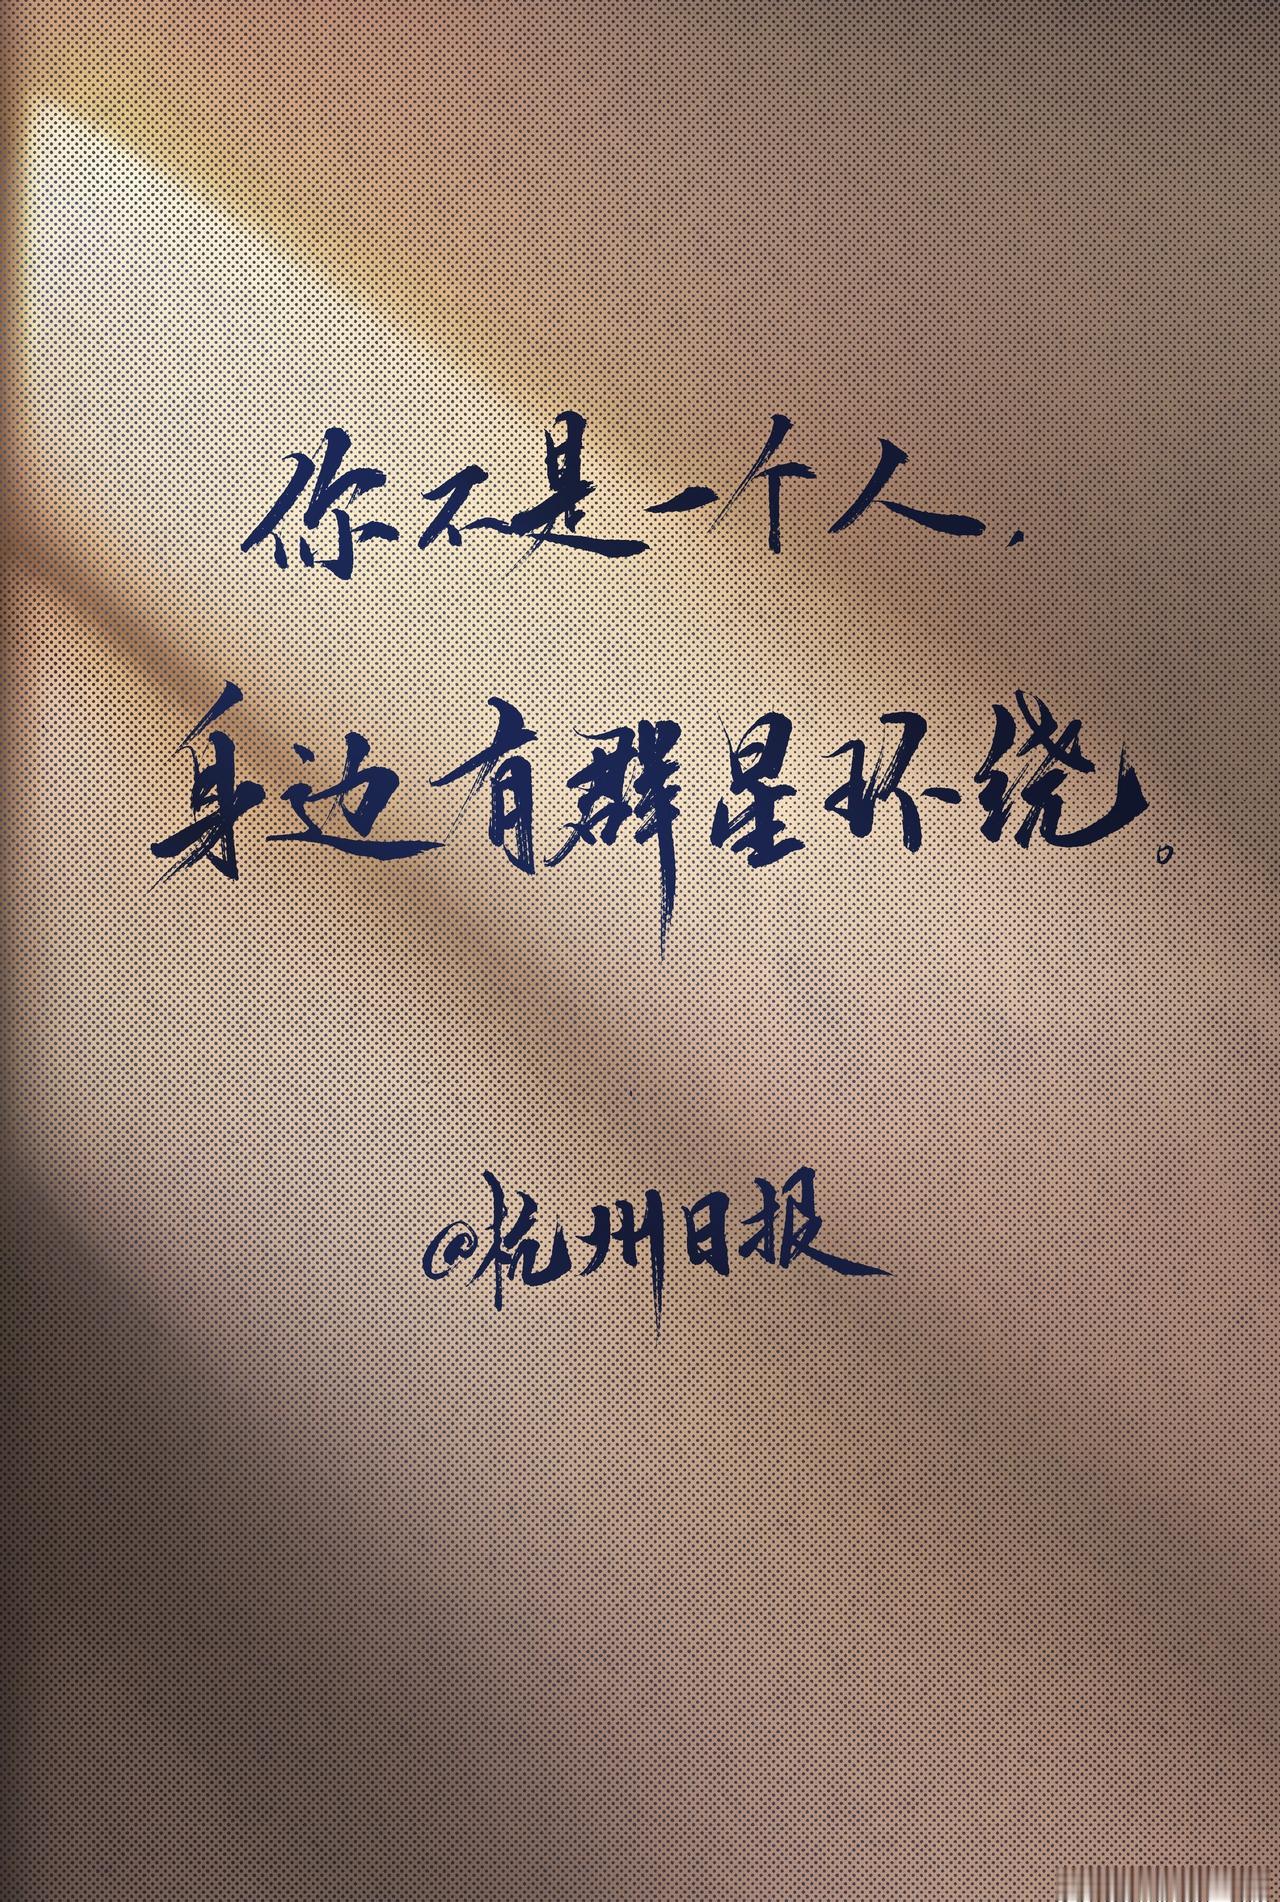 你不是一个人，
身边有群星环绕。
@杭州日报